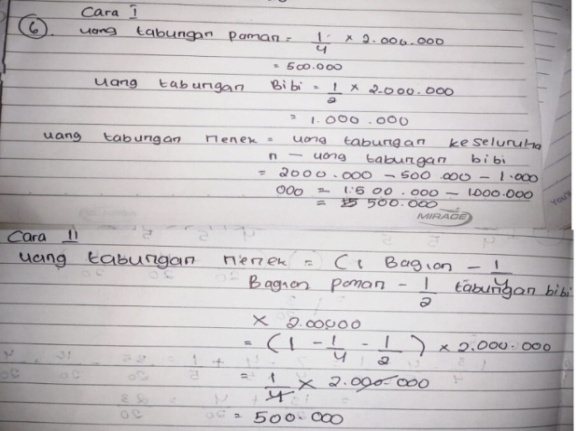 Cara I
6. uang tabungan paman = 1/4 × 2.000.000
= 500.000
uang tabungan Bibi = 1/2 × 2.000.000
= 1.000.000
uang tabungan nenek = uang tabungan keseluruha
n - uang tabungan bibi
= 2000.000 - 500.000 - 1.000
000 = 1.500.000 - 1.000.000
= 500.000
MIRAGE
Cara II
uang tabungan nenek = (1 Bagian - 1/4
Bagian paman - 1/2 tabungan bibi
× 2.00000
= (1 - 1/4 - 1/2) × 2.000.000
= 1/4 × 2.000.000
= 500.000